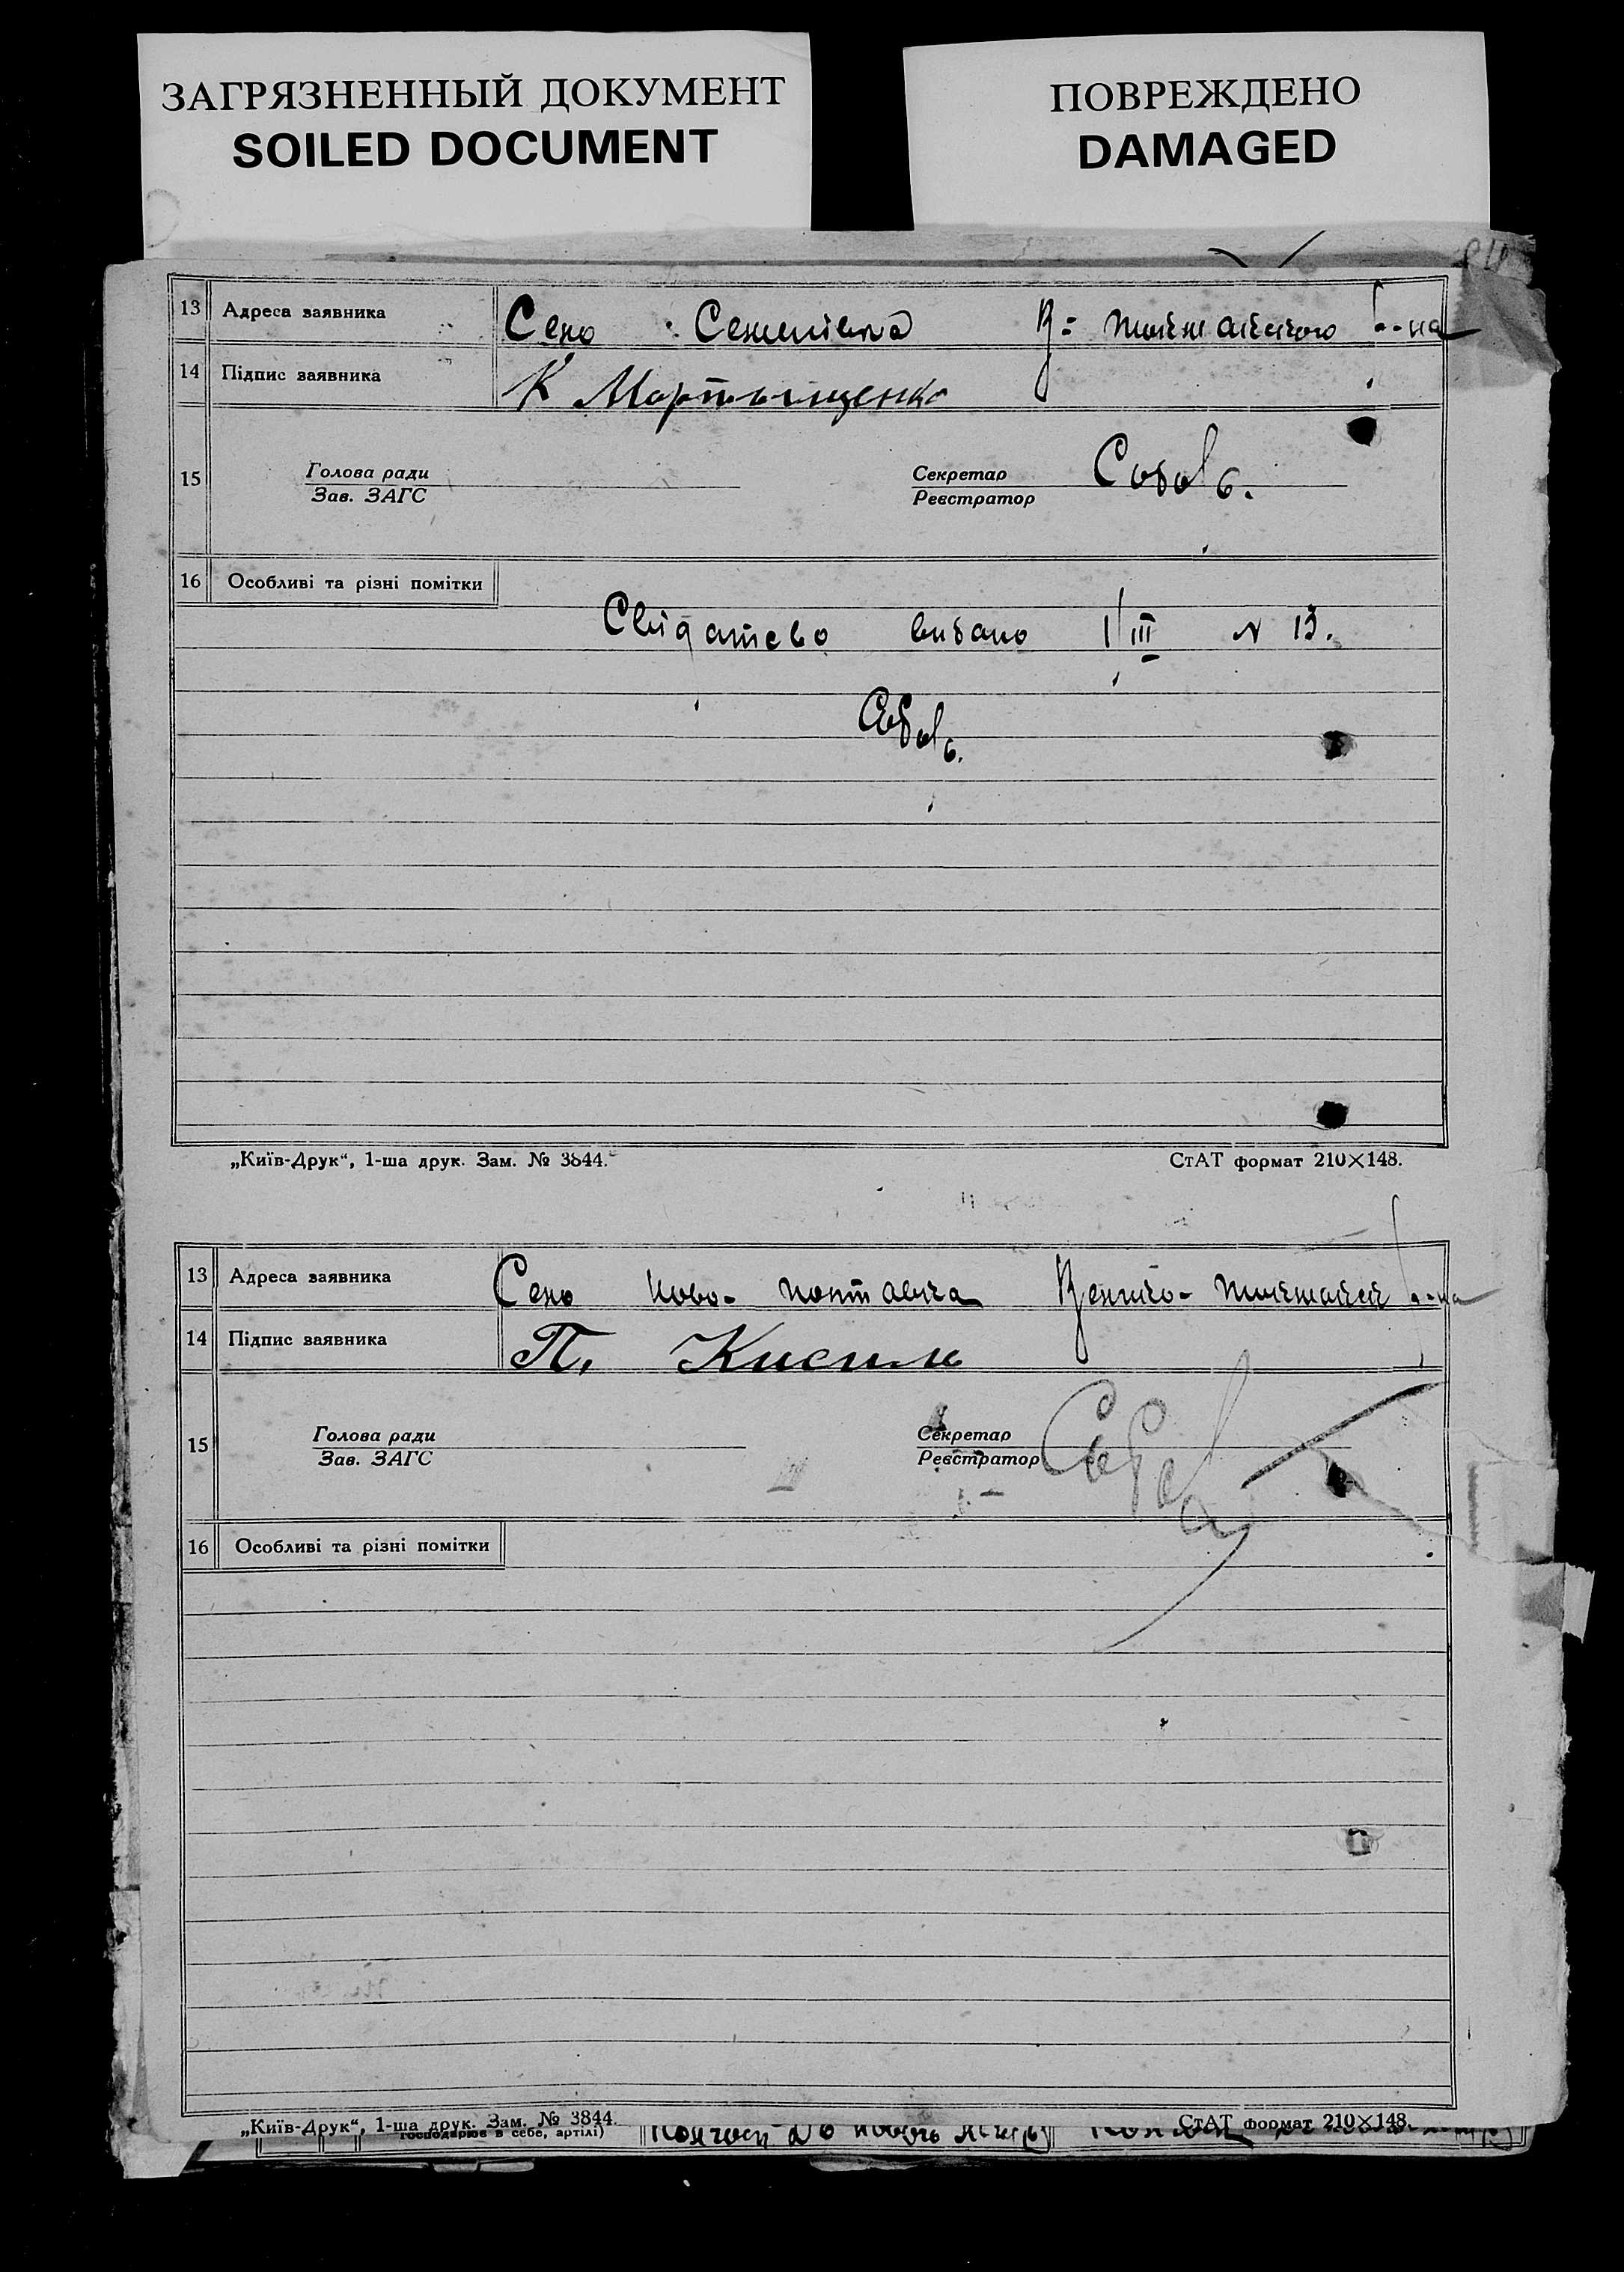 ЗАГРЯЗНЕННЫЙ ДОКУМЕНТ
SOILED DOCUMENT
ПОВРЕЖДЕНО
DAMAGED
13 Адреса заявника Село В=
14 Підпис заявника К Мартыщенко
15 Голова ради Секретар
Зав. ЗАГС Реєстратор
16 Особливі та різні помітки
Свідатсво видано 1/III N 13.
„Київ-Друк“, 1-ша друк. Зам. № 3844.
СтАТ формат 210×148.
13 Адреса заявника Село Ново-Полтавка Велико-
14 Підпис заявника П. Кисиль
15 Голова ради Секретар
Зав. ЗАГС Реєстратор
16 Особливі та різні помітки
„Київ-Друк“, 1-ша друк. Зам. № 3844.
СтАТ формат 210×148.
господарює в себе, артілі)